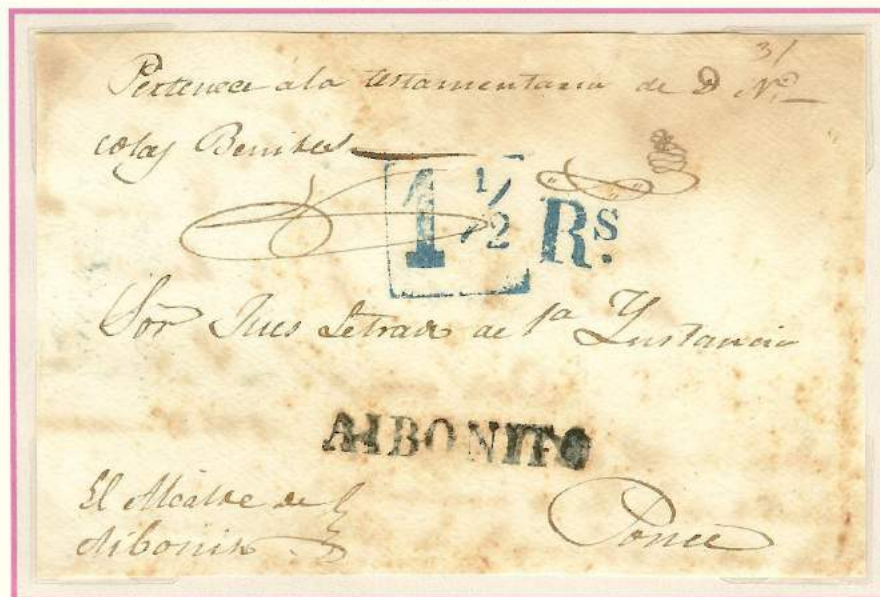 3/
Pertenece a la testamentaria de D Ni
colas Benites
1 1/2 Rs.
Sõr Jues Letrado de 1a Ynstancia
AIBONITO
El Alcalde de
Aibonito
Ponce